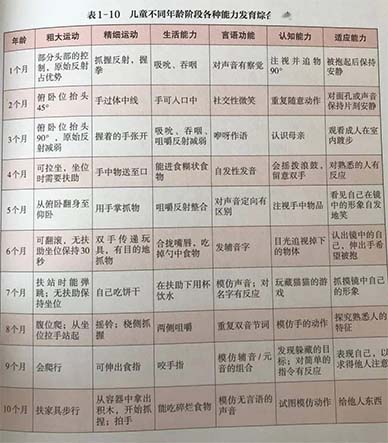 表1-10 儿童不同年龄阶段各种能力发育综合
年龄 粗大运动 精细运动 生活能力 言语功能 认知能力 适应能力
1个月 部分头部的控制,原始反射占优势 抓握反射,握拳 吸吮、吞咽 对声音有察觉 注视并追物90° 被抱起后保持安静
2个月 俯卧位抬头45° 手过体中线 手可入口中 社交性微笑 重复随意动作 对面孔或声音保持片刻安静
3个月 俯卧位抬头90°,原始反射减弱 握着的手张开 吸吮、吞咽、咀嚼反射减弱 咿呀作语 认识母亲 观看成人在室内踱步
4个月 可拉坐,坐位时需要扶助 手中物送至口 能进食糊状食物 自发性发音 会摇拨浪鼓,留意双手 对熟悉的人有反应
5个月 从俯卧翻身至仰卧 用手掌抓物 咀嚼反射整合 对声音定向有区别 注视手中物品 看见自己在镜中的形象自发地笑
6个月 可翻滚,无扶助坐位保持30秒 双手传递玩具,有目的地抓物 合拢嘴唇,吃掉勺中食物 发辅音字 目光追视掉下的物体 认出镜中的自己,伸出手希望被抱
7个月 扶站时能弹跳;无扶助保持坐位 自己吃饼干 在扶助下用杯饮水 模仿声音;对名字有反应 玩藏猫猫的游戏 抓摸镜中自己的形象
8个月 腹位爬;从坐位拉手站起 摇铃;桡侧抓握 两侧咀嚼 重复双音节词 模仿手的动作 探究熟悉人的特征
9个月 会爬行 可伸出食指 咬手指 模仿辅音/元音的组合 发现躲藏的目标;对简单的指令有反应 表现自己,以求得他人注意
10个月 扶家具步行 从容器中拿出积木,开始抓捏;拍手 能吃碎烂食物 模仿无言语的声音 试图模仿动作 给他人东西